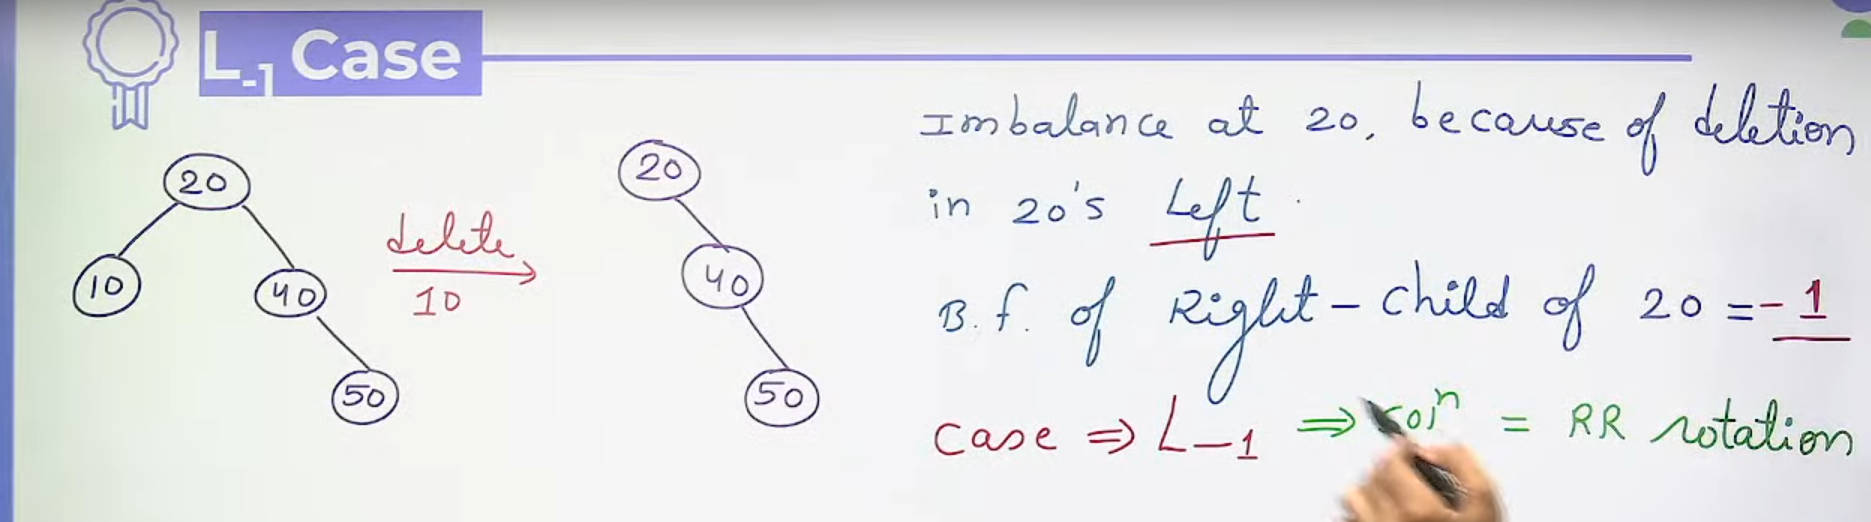 L-1 Case
20
10
40
50
delete
10
20
40
50
Imbalance at 20, because of deletion
in 20's Left.
B.f. of Right-child of 20 = -1
Case ⇒ L-1 ⇒ = RR rotation